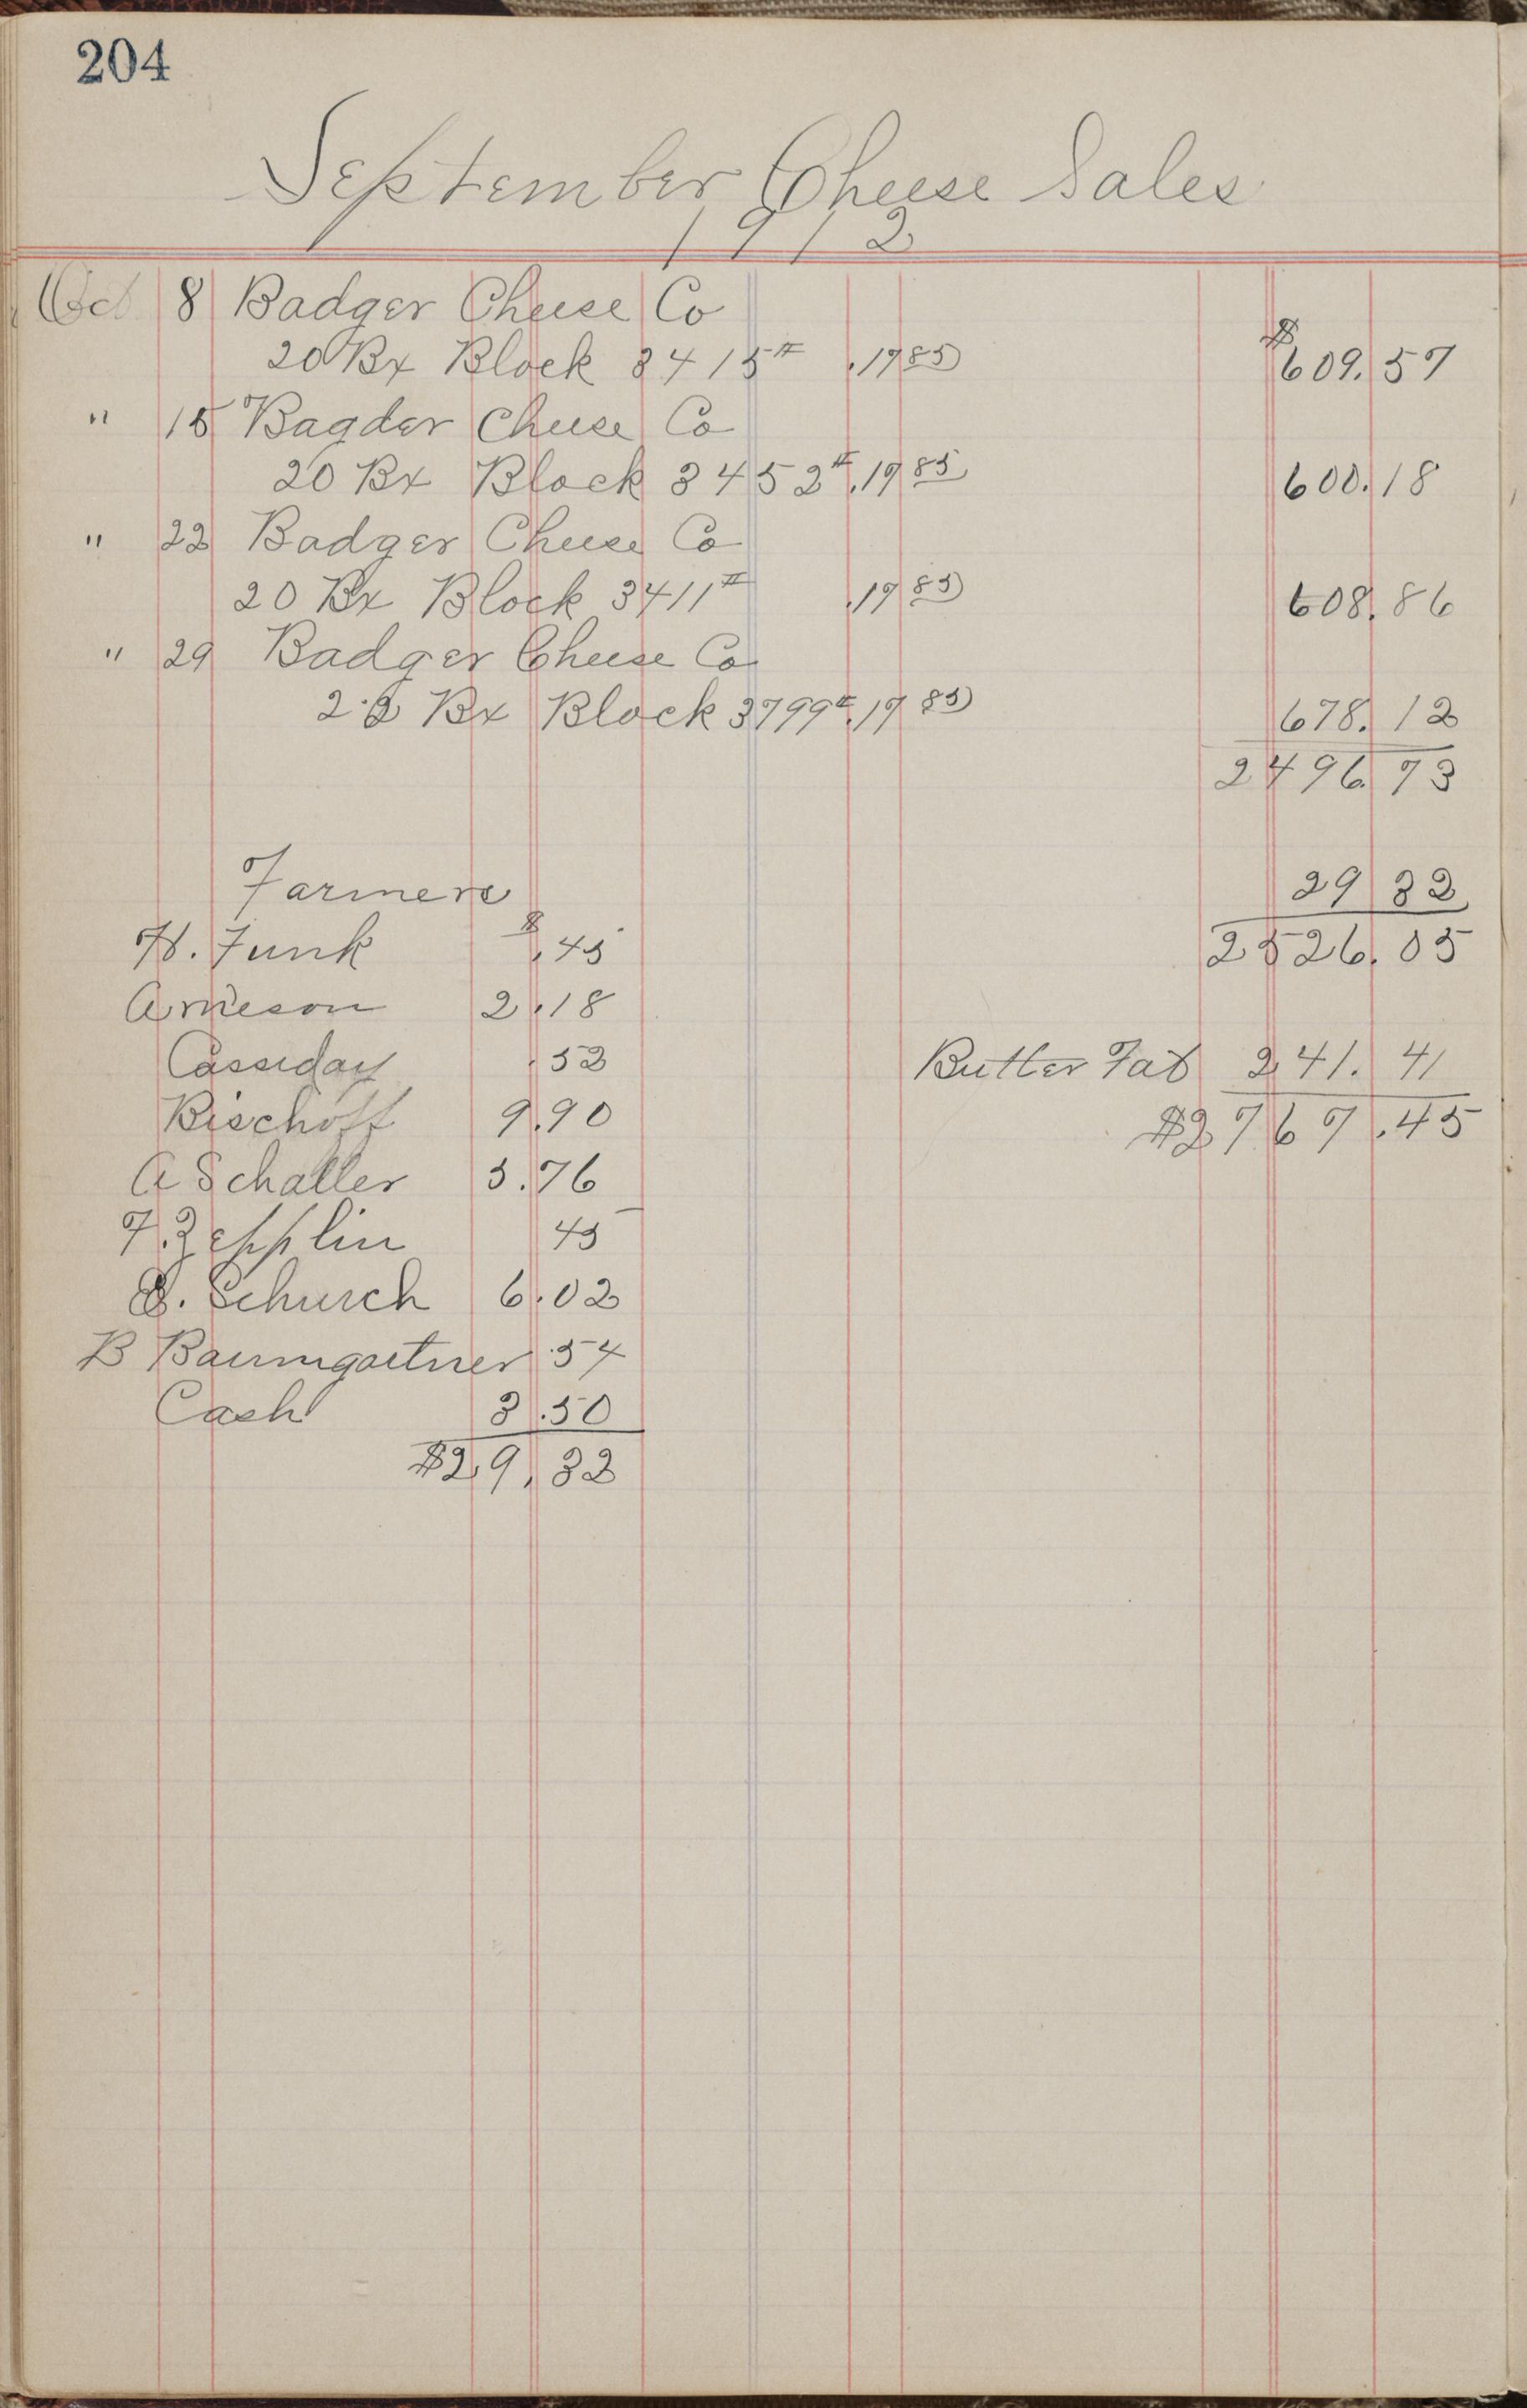 204
September Cheese Sales
1912
Oct 8 Badger Cheese Co
20 Bx Block 3415# .1785 $609.57
" 15 Bagder Cheese Co
20 Bx Block 3452# .1785 600.18
" 22 Badger Cheese Co
20 Bx Block 3411# .1785 608.86
" 29 Badger Cheese Co
22 Bx Block 3799# .1785 678.12
2496.73
29 32
2526.05
Butter Fat 241.41
$2767.45
Farmers
H. Funk $.45
Arneson 2.18
Cassiday .52
Bischoff 9.90
A Schaller 5.76
F. Zepplin 45
Schurch 6.02
B Baumgartner .54
Cash 3.50
$29.32